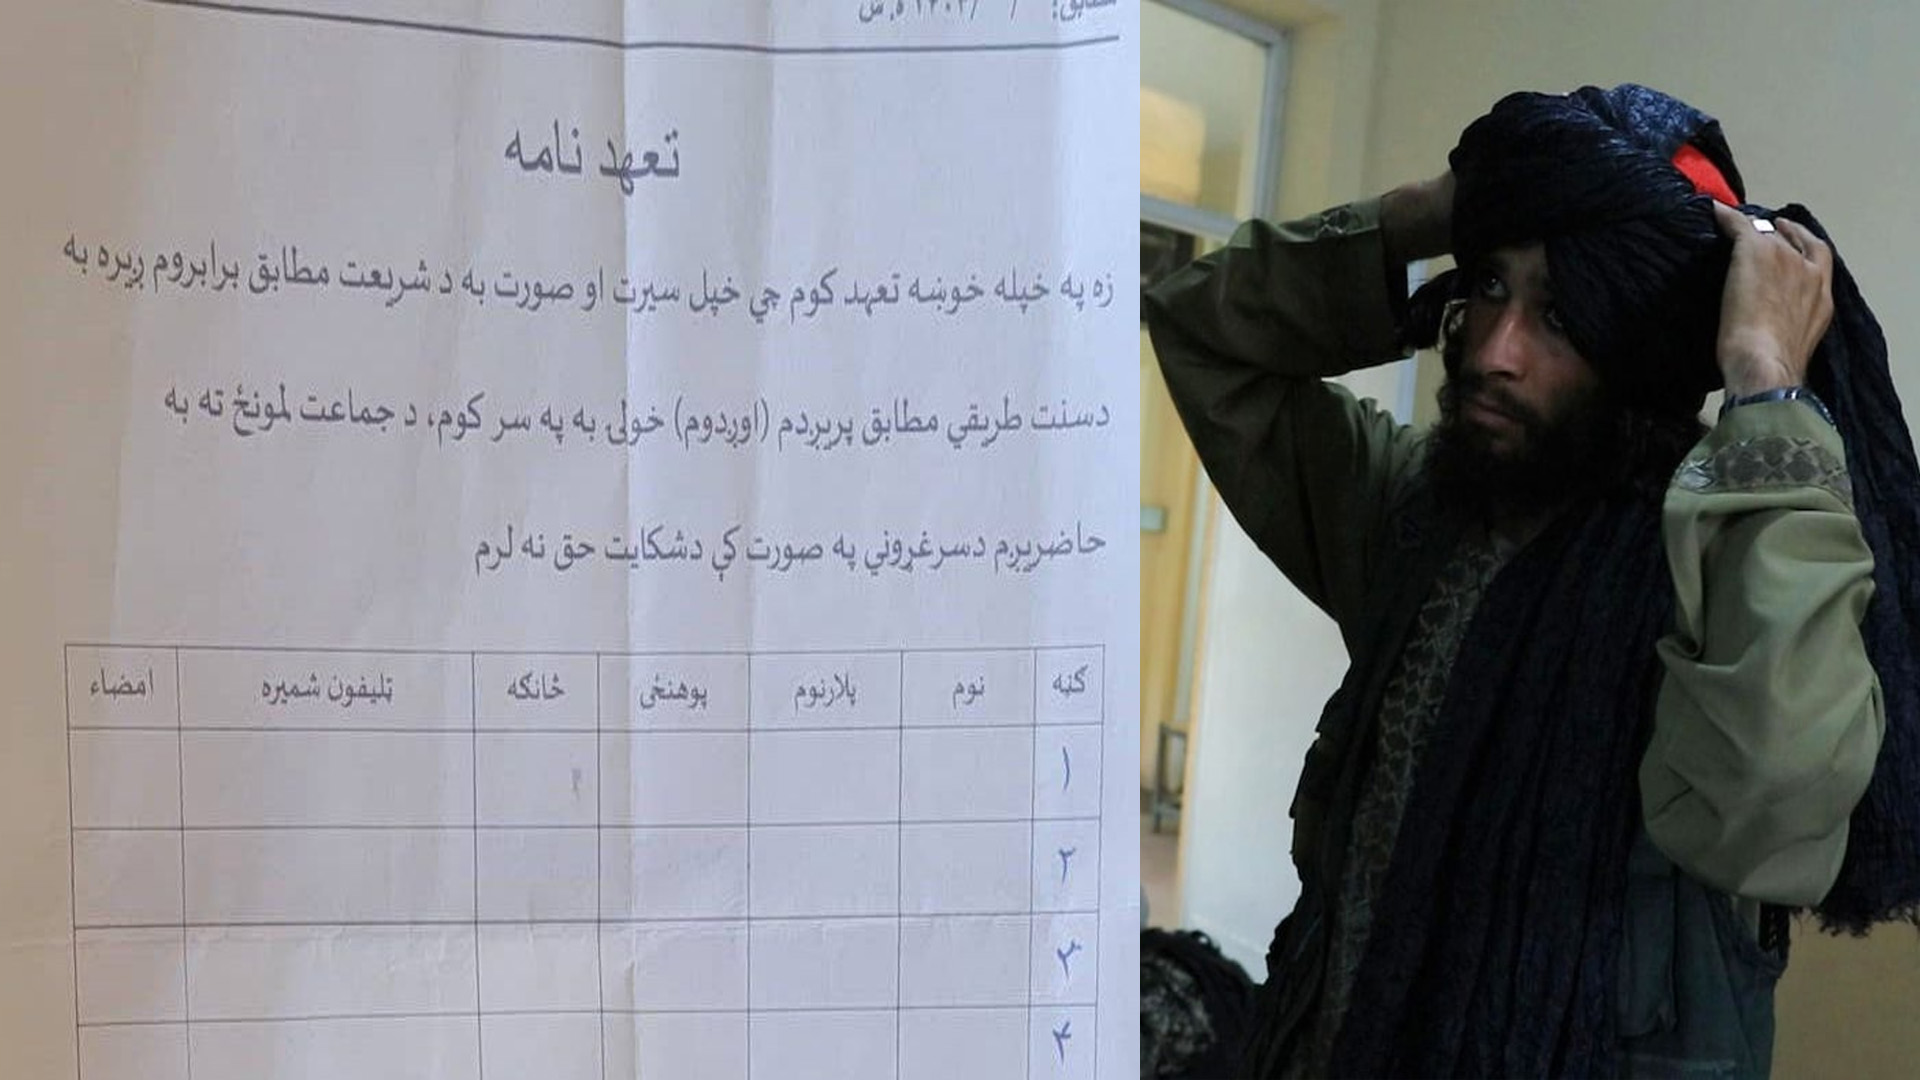 تعهد نامه
زه په خپله خوښه تعهد کوم چي خپل سيرت او صورت به د شريعت مطابق برابروم ږيره به
دسنت طريقي مطابق پريږدم (اوږدوم) خولۍ به په سر کوم، د جماعت لمونځ ته به
حاضريږم دسرغړوني په صورت کې دشکايت حق نه لرم
ګڼه نوم پلارنوم پوهنځی څانګه ټليفون شميره امضاء
۱
۲
۳
۴